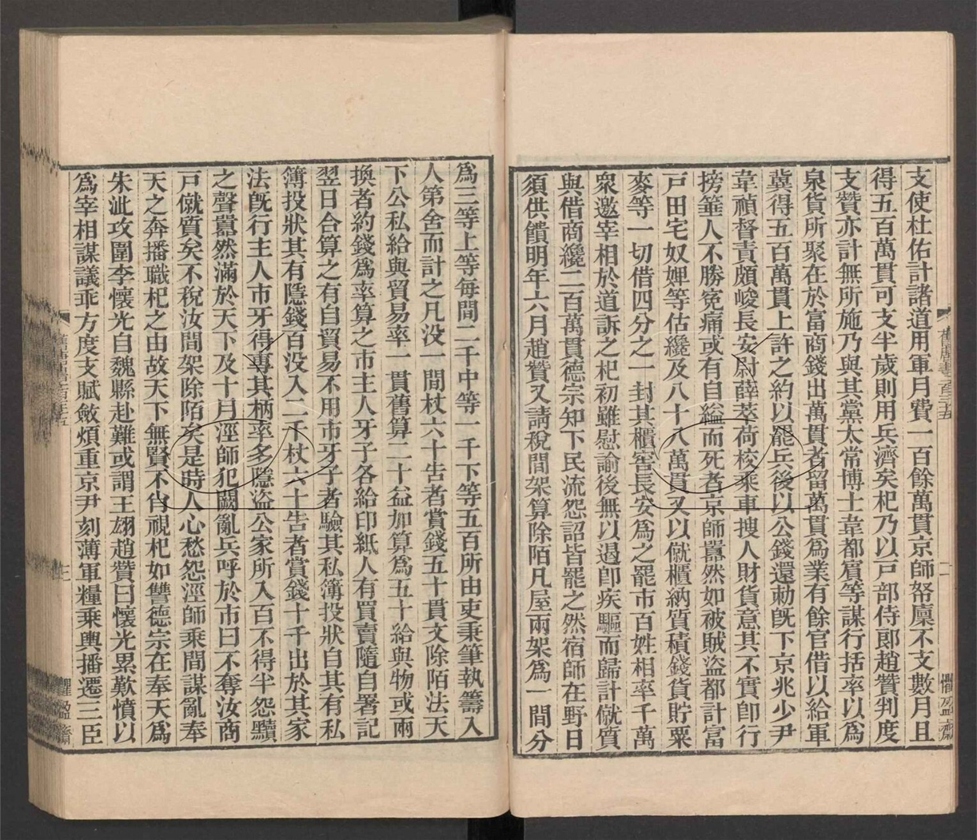 支使杜佑計諸道用軍月費一百餘萬貫京師帑廩不支數月且
得五百萬貫可支半歲則用兵濟矣杞乃以戸部侍郎趙贊判度
支贊亦計無所施乃與其黨太常博士韋都賓等謀行括率以爲
泉貨所聚在於富商錢出萬貫者留萬貫爲業有餘官借以給軍
冀得五百萬貫上許之約以罷兵後以公錢還勅旣下京兆少尹
韋禎督責頗峻長安尉薛萃荷校乘車搜人財貨意其不實卽行
搒箠人不勝冤痛或有自縊而死者京師囂然如被賊盜都計富
戸田宅奴婢等估纔及八十八萬貫又以僦櫃納質積錢貨貯粟
麥等一切借四分之一封其櫃窖長安爲之罷市百姓相率千萬
衆邀宰相於道訴之杞初雖慰諭後無以遏卽疾驅而歸計僦質
與借商纔二百萬貫德宗知下民流怨詔皆罷之然宿師在野日
須供饋明年六月趙贊又請稅間架算除陌凡屋兩架爲一間分
爲三等上等每間二千中等一千下等五百所由吏秉筆執籌入
人第舍而計之凡没一間杖六十告者賞錢五十貫文除陌法天
下公私給與貿易率一貫舊算二十益加算爲五十給與物或兩
換者約錢爲率算之市主人牙子各給印紙人有買賣隨自署記
翌日合算之有自貿易不用市牙子者驗其私簿投狀自其有私
簿投狀其有隱錢百没入二千杖六十告者賞錢十千出於其家
法旣行主人市牙得專其柄率多隱盜公家所入百不得半怨讟
之聲囂然滿於天下及十月涇師犯闕亂兵呼於市曰不奪汝商
戸僦質矣不稅汝間架除陌矣是時人心愁怨涇師乘間謀亂奉
天之奔播職杞之由故天下無賢不肖視杞如讐德宗在奉天爲
朱泚攻圍李懷光自魏縣赴難或謂王翃趙贊曰懷光累歎憤以
爲宰相謀議乖方度支賦斂煩重京尹刻薄軍糧乘輿播遷三臣